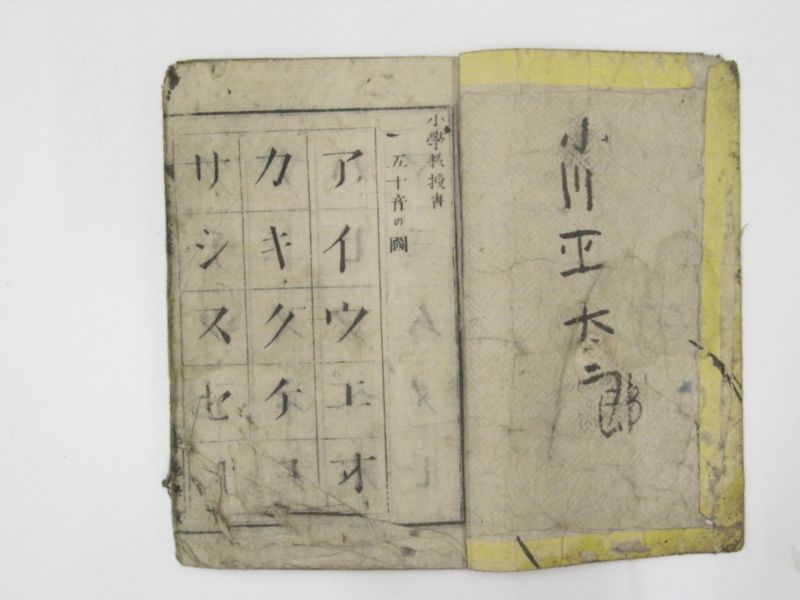 小川正太二郎
小學教授書
一 五十音の圖
アイウエオ
カキクケ
サシスセ